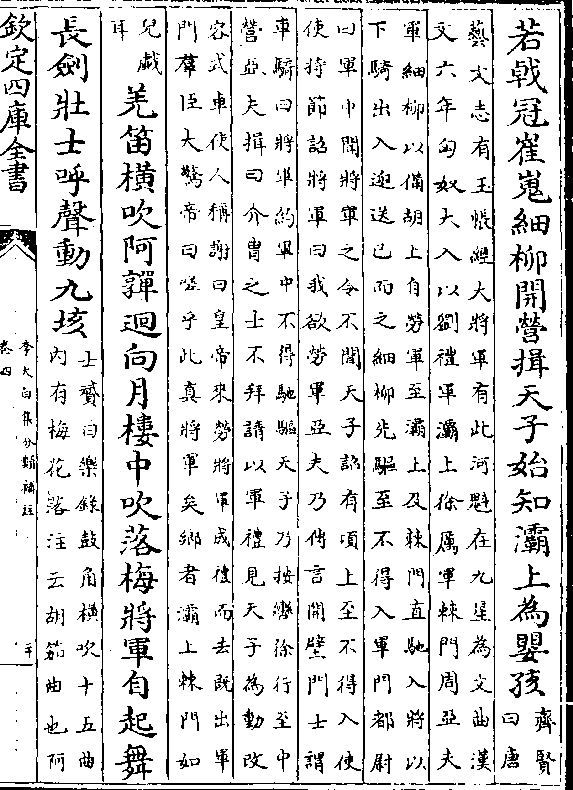 若戟冠崔嵬細柳開營揖天子始知灞上為嬰孩齊賢
曰唐
藝文志有玉帳經大將軍有此河魁在九星為文曲漢
文六年匈奴大入以劉禮軍灞上徐厲軍棘門周亞夫
軍細柳以備胡上自勞軍至灞上及棘門直馳入將以
下騎出入迎送已而之細柳先驅至不得入軍門都尉
曰軍中聞將軍之令不聞天子詔有頃上至不得入使
使持節詔將軍曰我欲勞軍亞夫乃傳言開壁門士謂
車騎曰將軍約軍中不得馳驅天子乃按轡徐行至中
營亞夫揖曰介胄之士不拜請以軍禮見天子為動改
容式車使人稱謝曰皇帝來勞將軍成禮而去既出軍
門羣臣大驚帝曰嗟乎此真將軍矣鄉者灞上棘門如
兒戲
耳
羌笛橫吹阿嚲迴向月樓中吹落梅將軍自起舞
長劍壯士呼聲動九垓
士贇曰樂錄鼓角橫吹十五曲
內有梅花落注云胡笳曲也阿
欽定四庫全書
李太白集分類補註
卷四